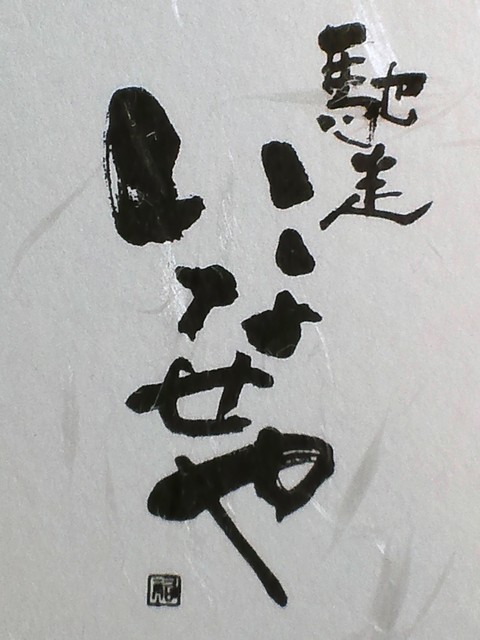 馳走
いなせや